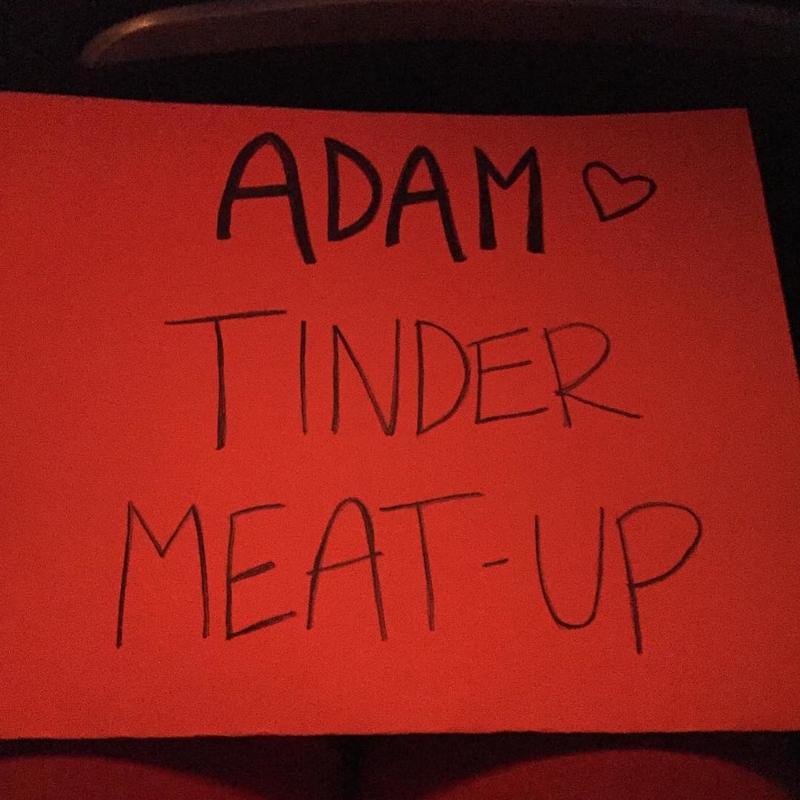 ADAM ♡
TINDER
MEAT-UP